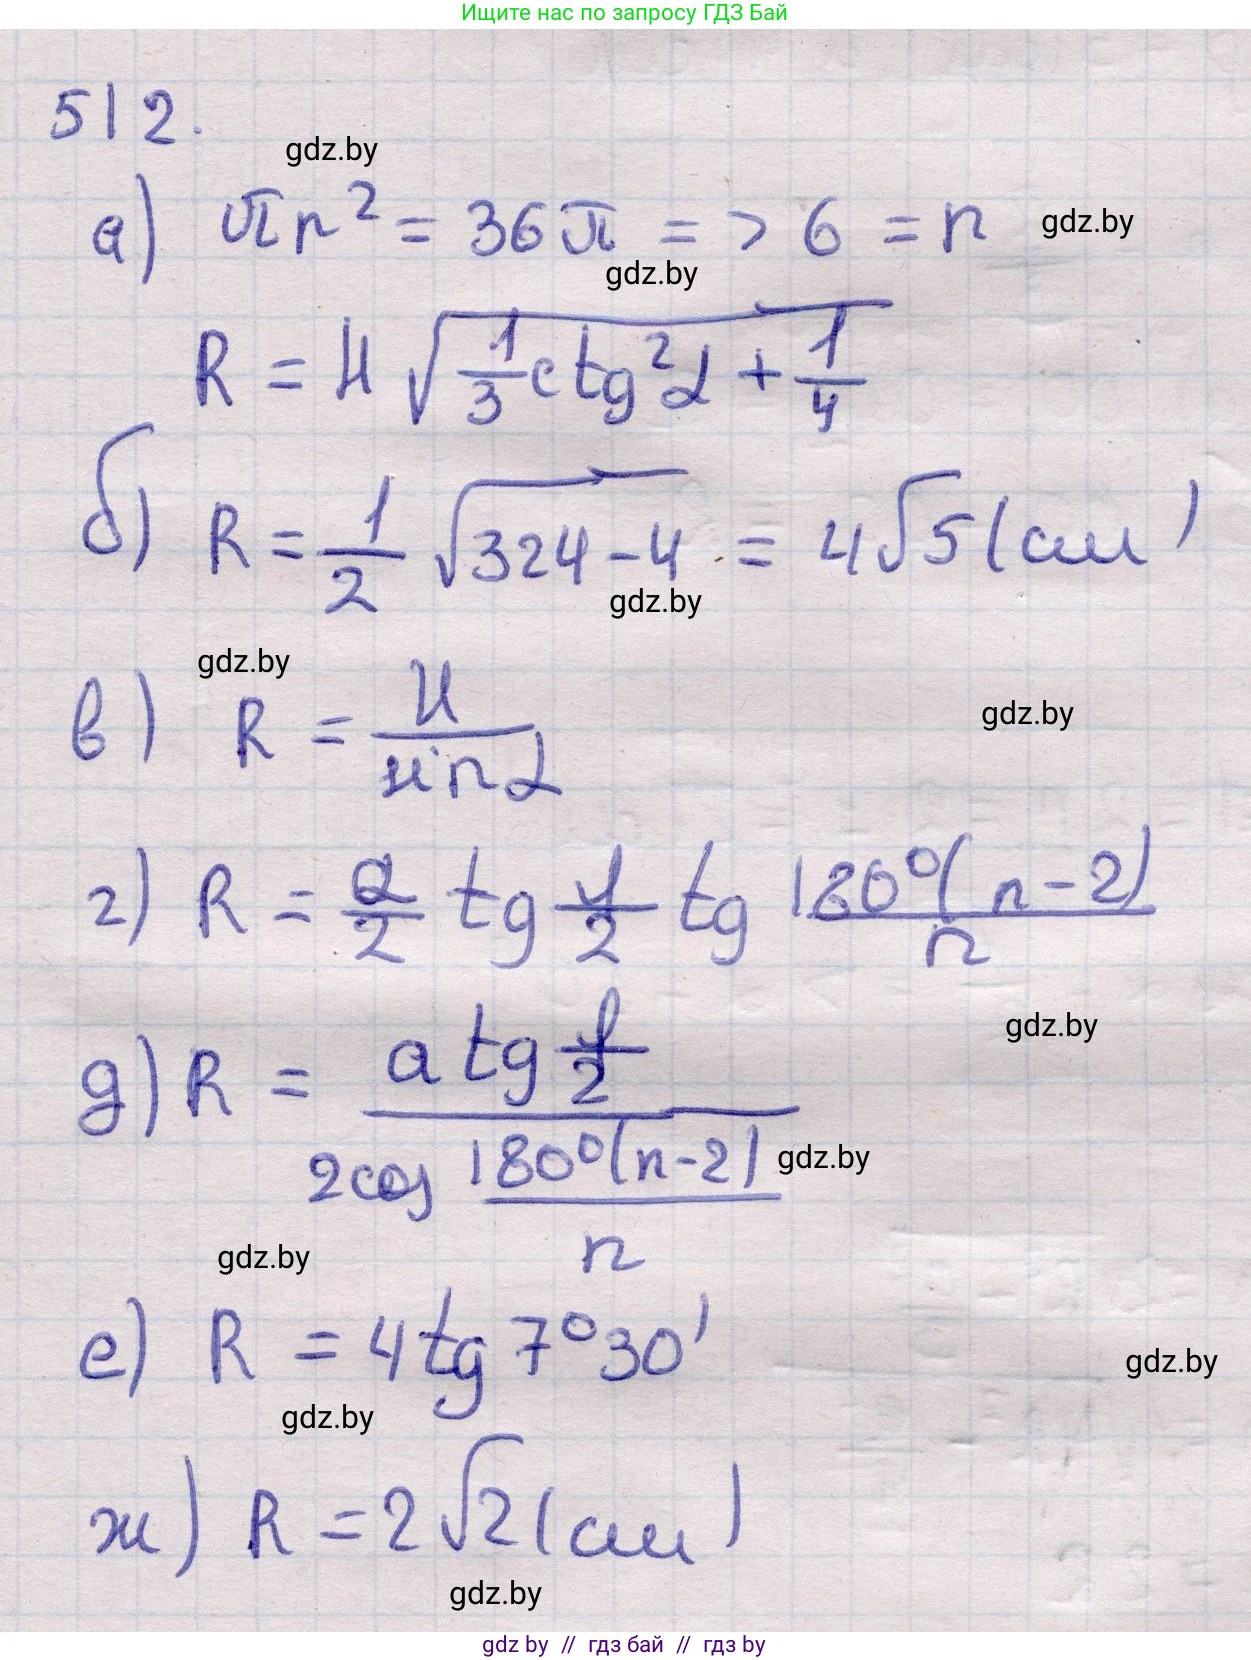 Ищите нас по запросу ГДЗ Бай
512.
gdz.by
а) πr² = 36π => 6 = r gdz.by
gdz.by
R = H√(1/3 ctg²α + 1/4)
б) R = 1/2 √(324-4) = 4√5 (см)
gdz.by
gdz.by
в) R = H/sinα gdz.by
г) R = a/2 tg φ/2 tg 180°(n-2)/n
gdz.by
д) R = a tg φ/2 / 2cos 180°(n-2)/n gdz.by
gdz.by
е) R = 4tg 7°30'
gdz.by
gdz.by
ж) R = 2√2 (см)
gdz.by
gdz by // гдз бай // гдз by